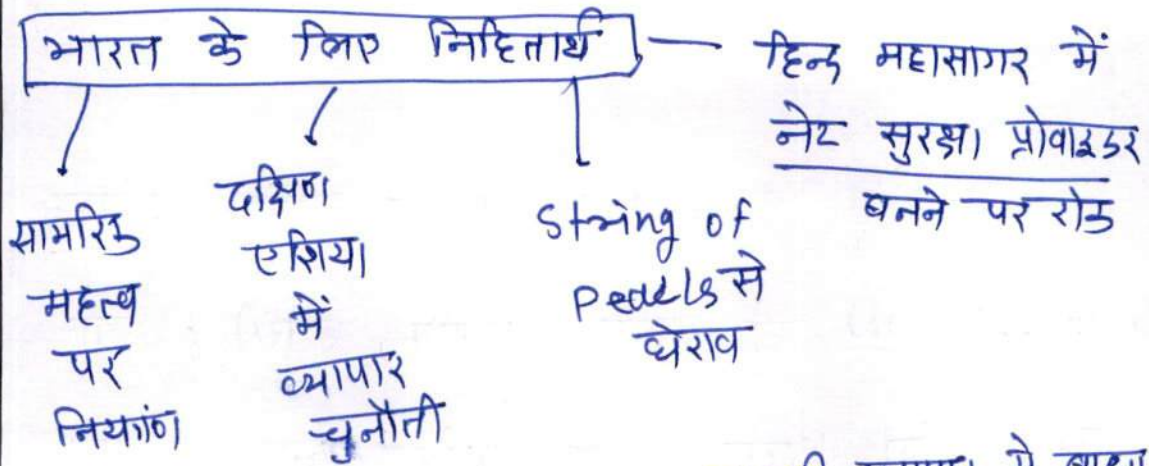 भारत के लिए निहितार्थ — हिन्द महासागर में
नेट सुरक्षा प्रोवाइडर
बनने पर रोक
सामरिक
महत्व
पर
नियंत्रण
दक्षिण
एशिया
में
व्यापार
चुनौती
String of
Pearls से
घेराव